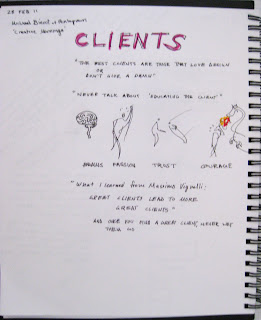 28 FEB 11
Michael Bierut of Pentagram
Creative Mornings
CLIENTS
"THE BEST CLIENTS ARE THOSE THAT LOVE DESIGN
OR
DON'T GIVE A DAMN"
"NEVER TALK ABOUT 'EDUCATING THE CLIENT'"
BRAINS PASSION TRUST COURAGE
"What I learned from Massimo Vignelli:
GREAT CLIENTS LEAD TO MORE
GREAT CLIENTS"
AND ONCE YOU FIND A GREAT CLIENT, NEVER LET
THEM GO